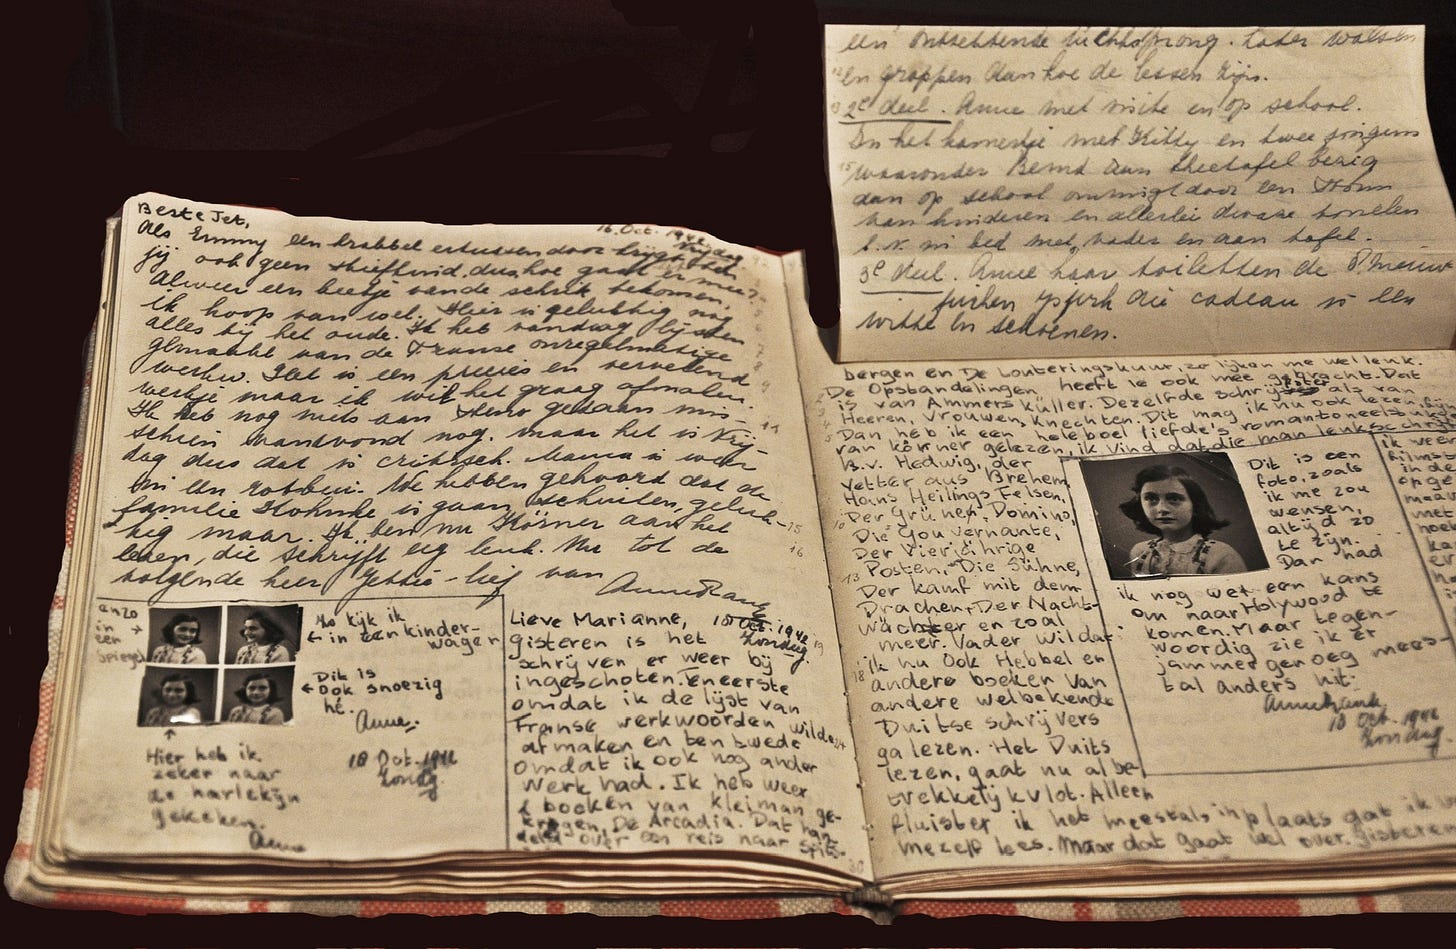 Beste Jet,
16. Oct. 1942
Vrijdag
Als Emmy een krabbel ertussendoor krijgt, ben
jij ook geen stiefkind, dus hoe gaat er mee?
Alweer een beetje van de schrik bekomen,
ik hoop van wel. Hier is gelukkig nog
alles bij het oude. Ik heb vandaag lijsten
gemaakt van de Franse onregelmatige
werkw. Het is een precies en vervelend
werkje maar ik wil het graag afmaken.
Ik heb nog niets aan Steno gedaan mis-
schien vanavond nog. maar het is Vrij-
dag dus dat is critisch. Mama is weer
in een rotbui. We hebben gehoord dat de
familie is gaan schuilen, geluk-
kig maar. Ik ben nu Körner aan het
lezen, die schrijft erg leuk. Nu tot de
volgende keer Jettie-lief van
Anne Frank
enzo
in
een
spiegel
Zo kijk ik
in een kinder-
wagen
Dit is
ook snoezig
hè.
Anne.
18 Oct. 1942
Zondag
Hier heb ik
zeker naar
de harlekijn
gekeken.
Anne
Lieve Marianne, 18 Oct. 1942
Zondag.
Gisteren is het
schrijven er weer bij
ingeschoten. Teneerste
omdat ik de lijst van
Franse werkwoorden wilde
afmaken en ten twede
omdat ik ook nog ander
werk had. Ik heb weer
2 boeken van Kleiman ge-
kregen, De Arcadia. Dat han-
deld over een reis naar Spits-
een ontzettende luchtsprong. Later walsen
en grappen dan hoe de lessen zijn.
2e deel. Anne met visite en op school.
In het kamertje met Kitty en twee jongens
waaronder Bernd aan theetafel bezig
dan op school omringt door een
van kinderen en allerlei dwaze tonelen
b.v. in bed met vader en aan tafel.
3e deel. Anne haar toiletten de
die cadeau is een
witte en schoenen.
bergen en De Louteringskuur, zo lijken me wel leuk.
De Opstandelingen heeft ie ook mee gebracht. Dat
is van Ammers Küller. Dezelfde schrijfster als van
Heeren, Vrouwen, Knechten. Dit mag ik nu ook lezen, fijn
Dan heb ik een heleboel liefde's romantoneelstukjes
van körner gelezen, ik vind dat die man leuk schrijft
B.v. Hedwig, der
Vetter aus Brehem,
Hans Heilings Felsen,
Der Grüne Domino,
Die Gouvernante,
Der Vierjährige
Posten, Die Sühne,
Der Kamf mit dem
Drachen, Der Nacht-
wächter en zoal
meer. Vader wil dat
ik nu ook Hebbel en
andere boeken van
andere welbekende
Duitse schrijvers
ga lezen. Het Duits
lezen, gaat nu al be-
trekkelijk vlot. Alleen
fluister ik het meestals in plaats dat ik
mezelf lees. Maar dat gaat wel over. Gisteren
Dit is een
foto, zoals
ik me zou
wensen,
altijd zo
te zijn.
Dan had
ik nog wel een kans
om naar Holywood te
komen. Maar tegen-
woordig zie ik er
jammer genoeg mees-
tal anders uit.
Annefrank.
18 Oct. 1942
Zondag.